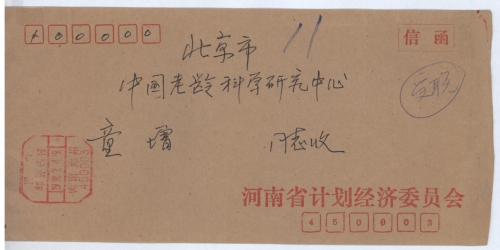 100000
11
信函
北京市
中国老龄科学研究中心
童增 同志收
河南省计划经济委员会
450003